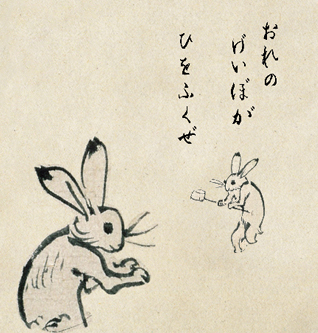 おれの
げいぼが
ひをふくぜ